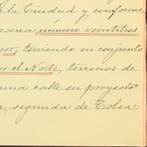 a la Ciudad y conforme
zana número veintitres
por, teniendo en conjunto
or el Norte, terrenos de
una calle en proyecto
e, segunda de Tolsa,